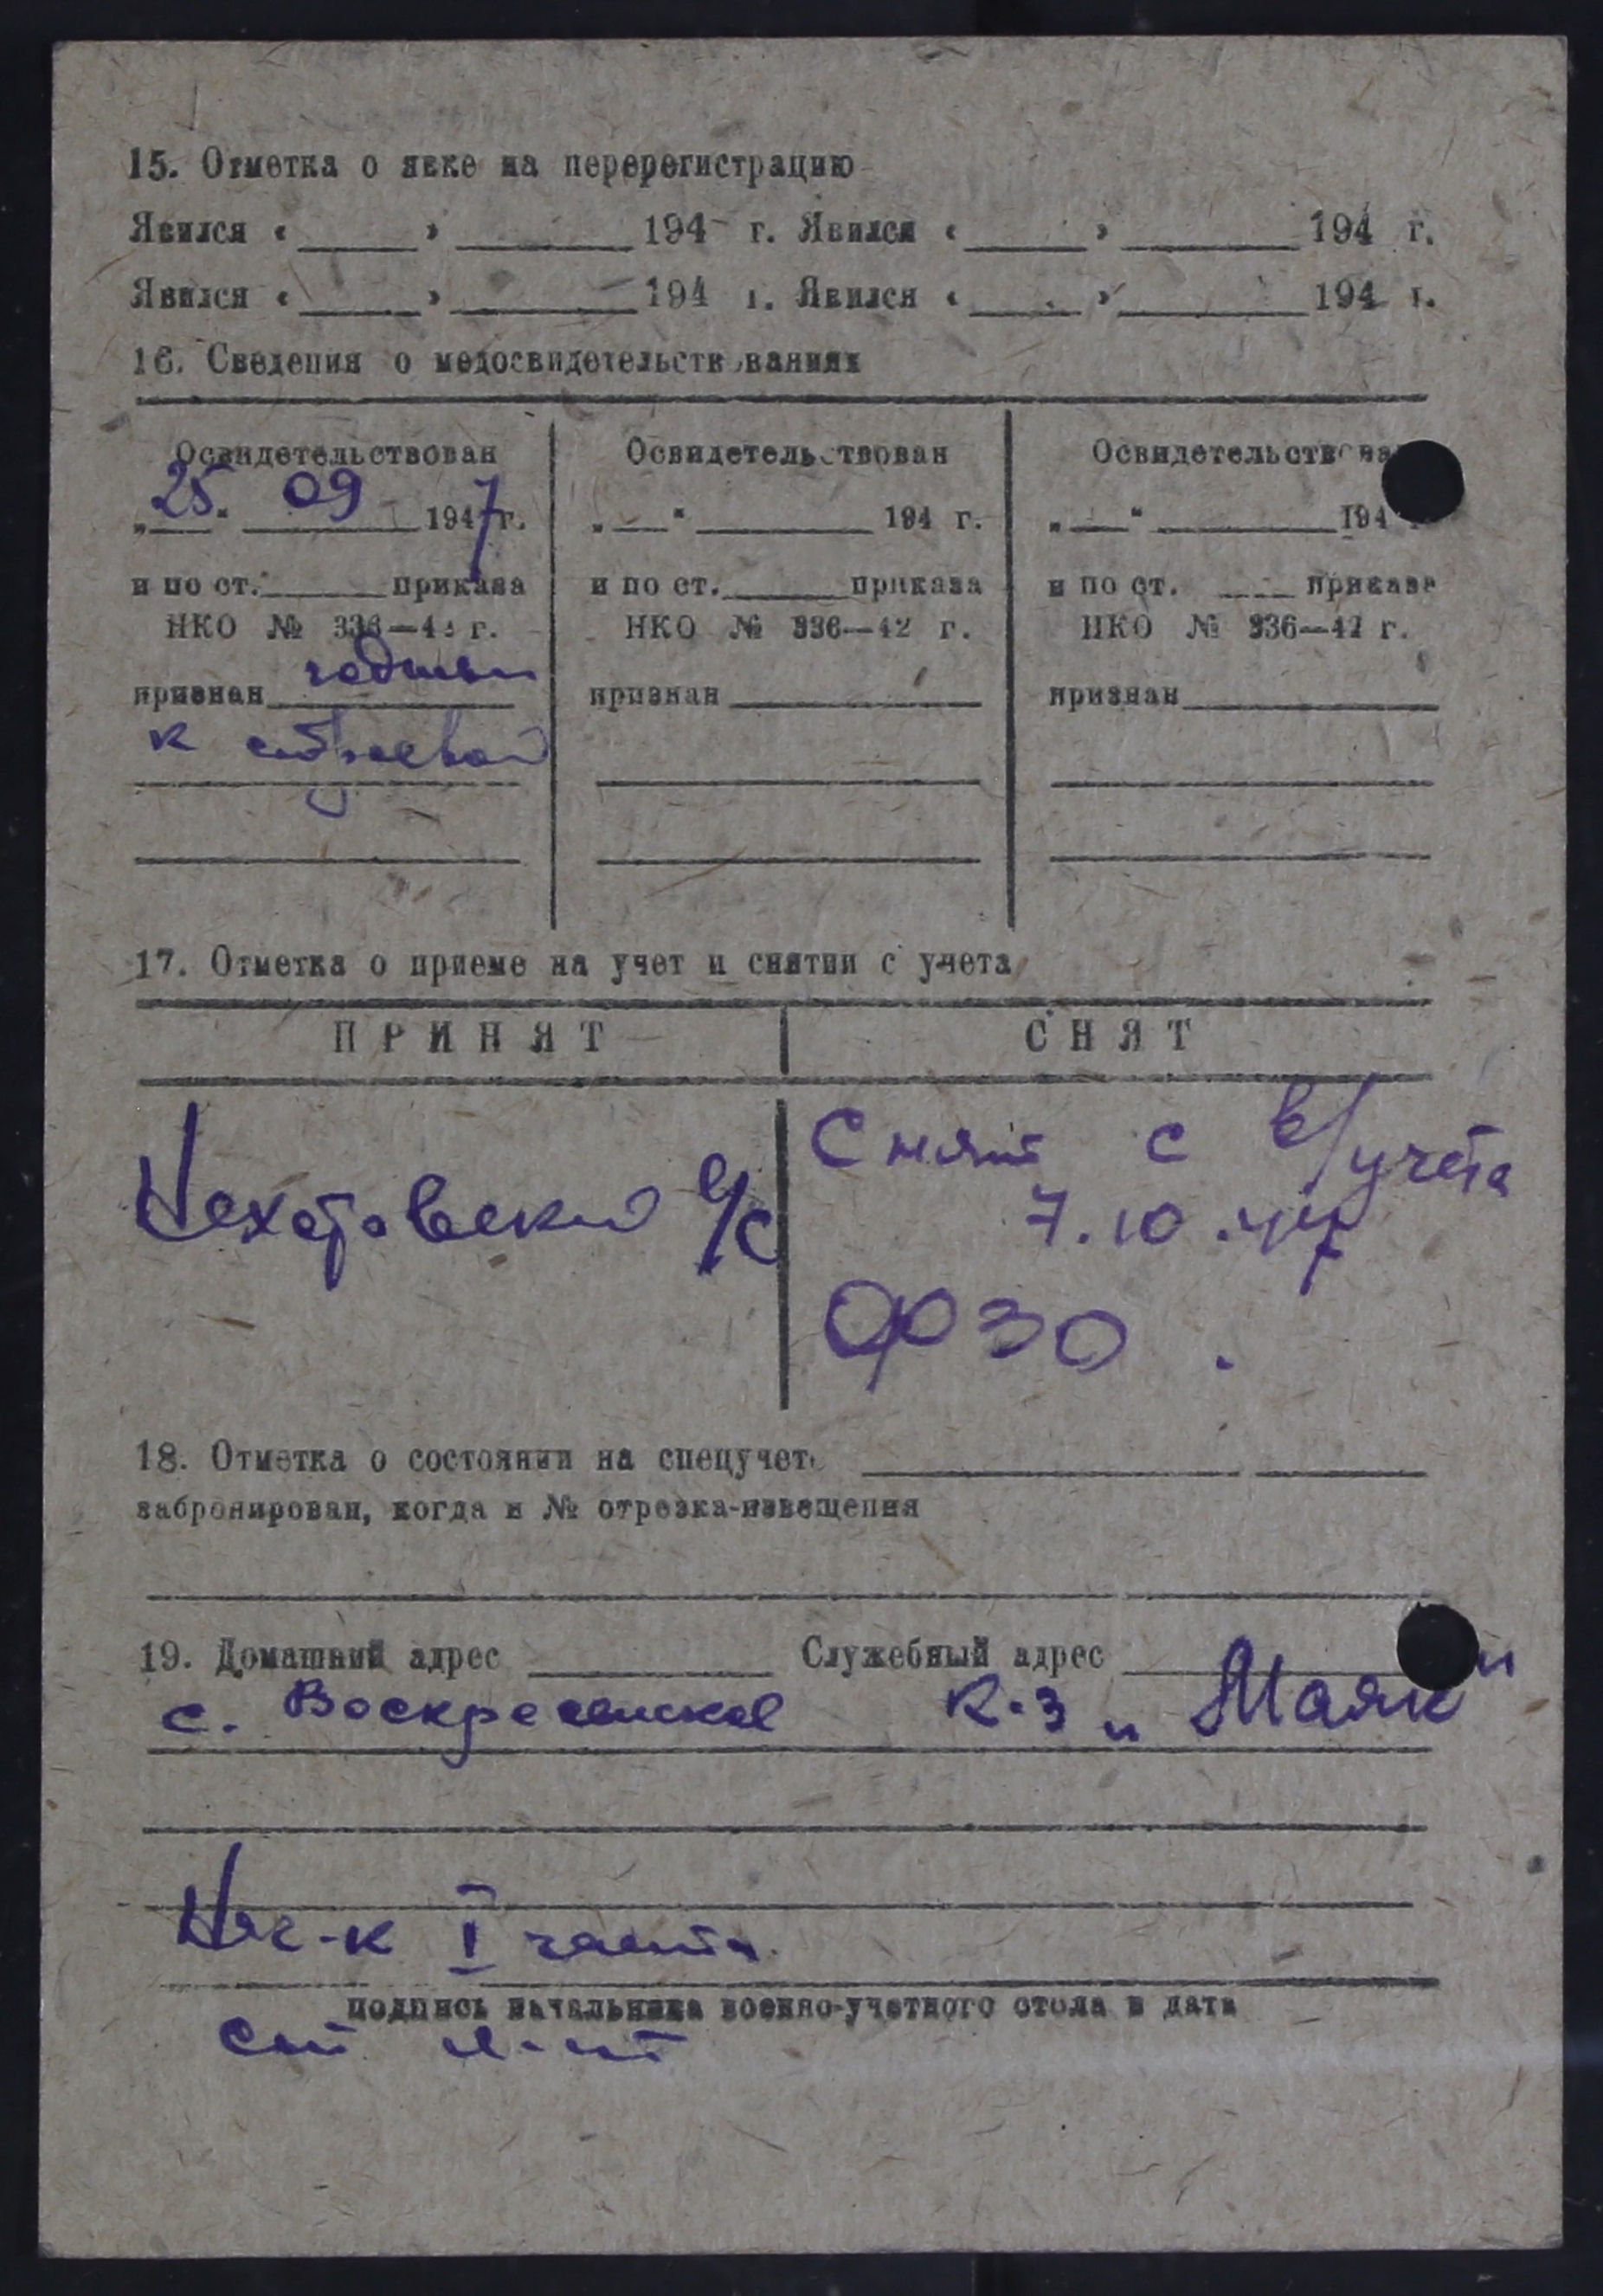 15. Отметка о явке на перерегистрацию
Явился «____» ______ 194 г. Явился «____» ______ 194 г.
Явился «____» ______ 194 г. Явился «____» ______ 194 г.
16. Сведения о медосвидетельствованиях
Освидетельствован
„25“ 09 1947 г.
и по ст. ____ приказа
НКО № 336—42 г.
признан годным
к строевой
Освидетельствован
„__“ ______ 194 г.
и по ст. ____ приказа
НКО № 336—42 г.
признан ______
Освидетельствован
„__“ ______ 194 г.
и по ст. ____ приказа
НКО № 336—42 г.
признан ______
17. Отметка о приеме на учет и снятии с учета
ПРИНЯТ
СНЯТ
с/с
Снят с в/учета
7.10.47
ФЗО.
18. Отметка о состоянии на спецучете ______
забронирован, когда и № отрезка-извещения
19. Домашний адрес ______ Служебный адрес ______
с. Воскресенское к-з „Маяк“
Нач-к I части
подпись начальника военно-учетного стола и дата
ст. л-нт